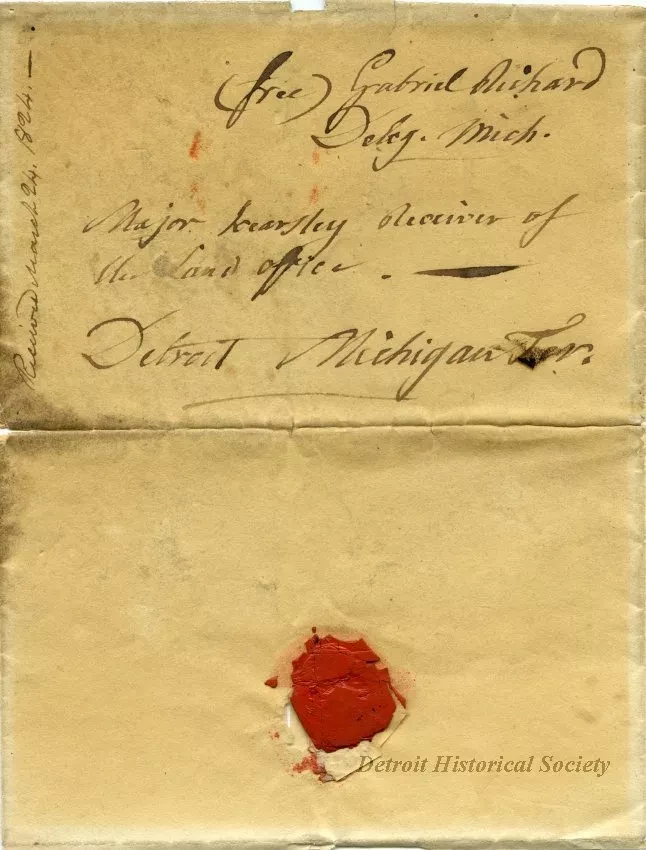 (free) Gabriel Richard
Deleg. Mich.
Major Kearsley Receiver of
the Land office. —
Detroit Michigan Ter.
Received March 24. 1824. —
Detroit Historical Society